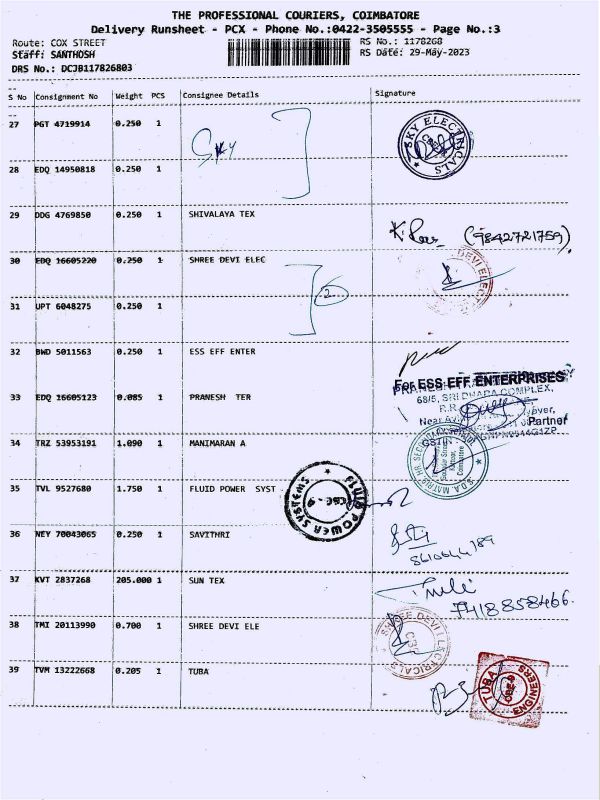 THE PROFESSIONAL COURIERS, COIMBATORE
Delivery Runsheet - PCX - Phone No.:0422-3505555 - Page No.:3
Route: COX STREET RS No.: 1178268
Staff: SANTHOSH RS Date: 29-May-2023
DRS No.: DCJB117826803
S No Consignment No Weight PCS Consignee Details Signature
27 PGT 4719914 0.250 1 SKY ELECTRICALS
Sky
28 EDQ 14950818 0.250 1
29 DDG 4769850 0.250 1 SHIVALAYA TEX
(9842721759)
30 EDQ 16605220 0.250 1 SHREE DEVI ELEC DEVI ELEC
2
31 UPT 6048275 0.250 1
32 BWD 5011563 0.250 1 ESS EFF ENTER
For ESS EFF ENTERPRISES
33 EDQ 16605123 0.085 1 PRANESH TER
68/5, SRI DWADA COMPLEX,
Partner
34 TRZ 53953191 1.090 1 MANIMARAN A
S.D.A. MATRIC HR. SEC
35 TVL 9527680 1.750 1 FLUID POWER SYST FLUID POWER SYSTEMS
36 NEY 70043065 0.250 1 SAVITHRI
37 KVT 2837268 205.000 1 SUN TEX
7418858466
38 TMI 20113990 0.700 1 SHREE DEVI ELE SHREE DEVI ELECTRICALS
39 TVM 13222668 0.205 1 TUBA TUBA ENGINEERS